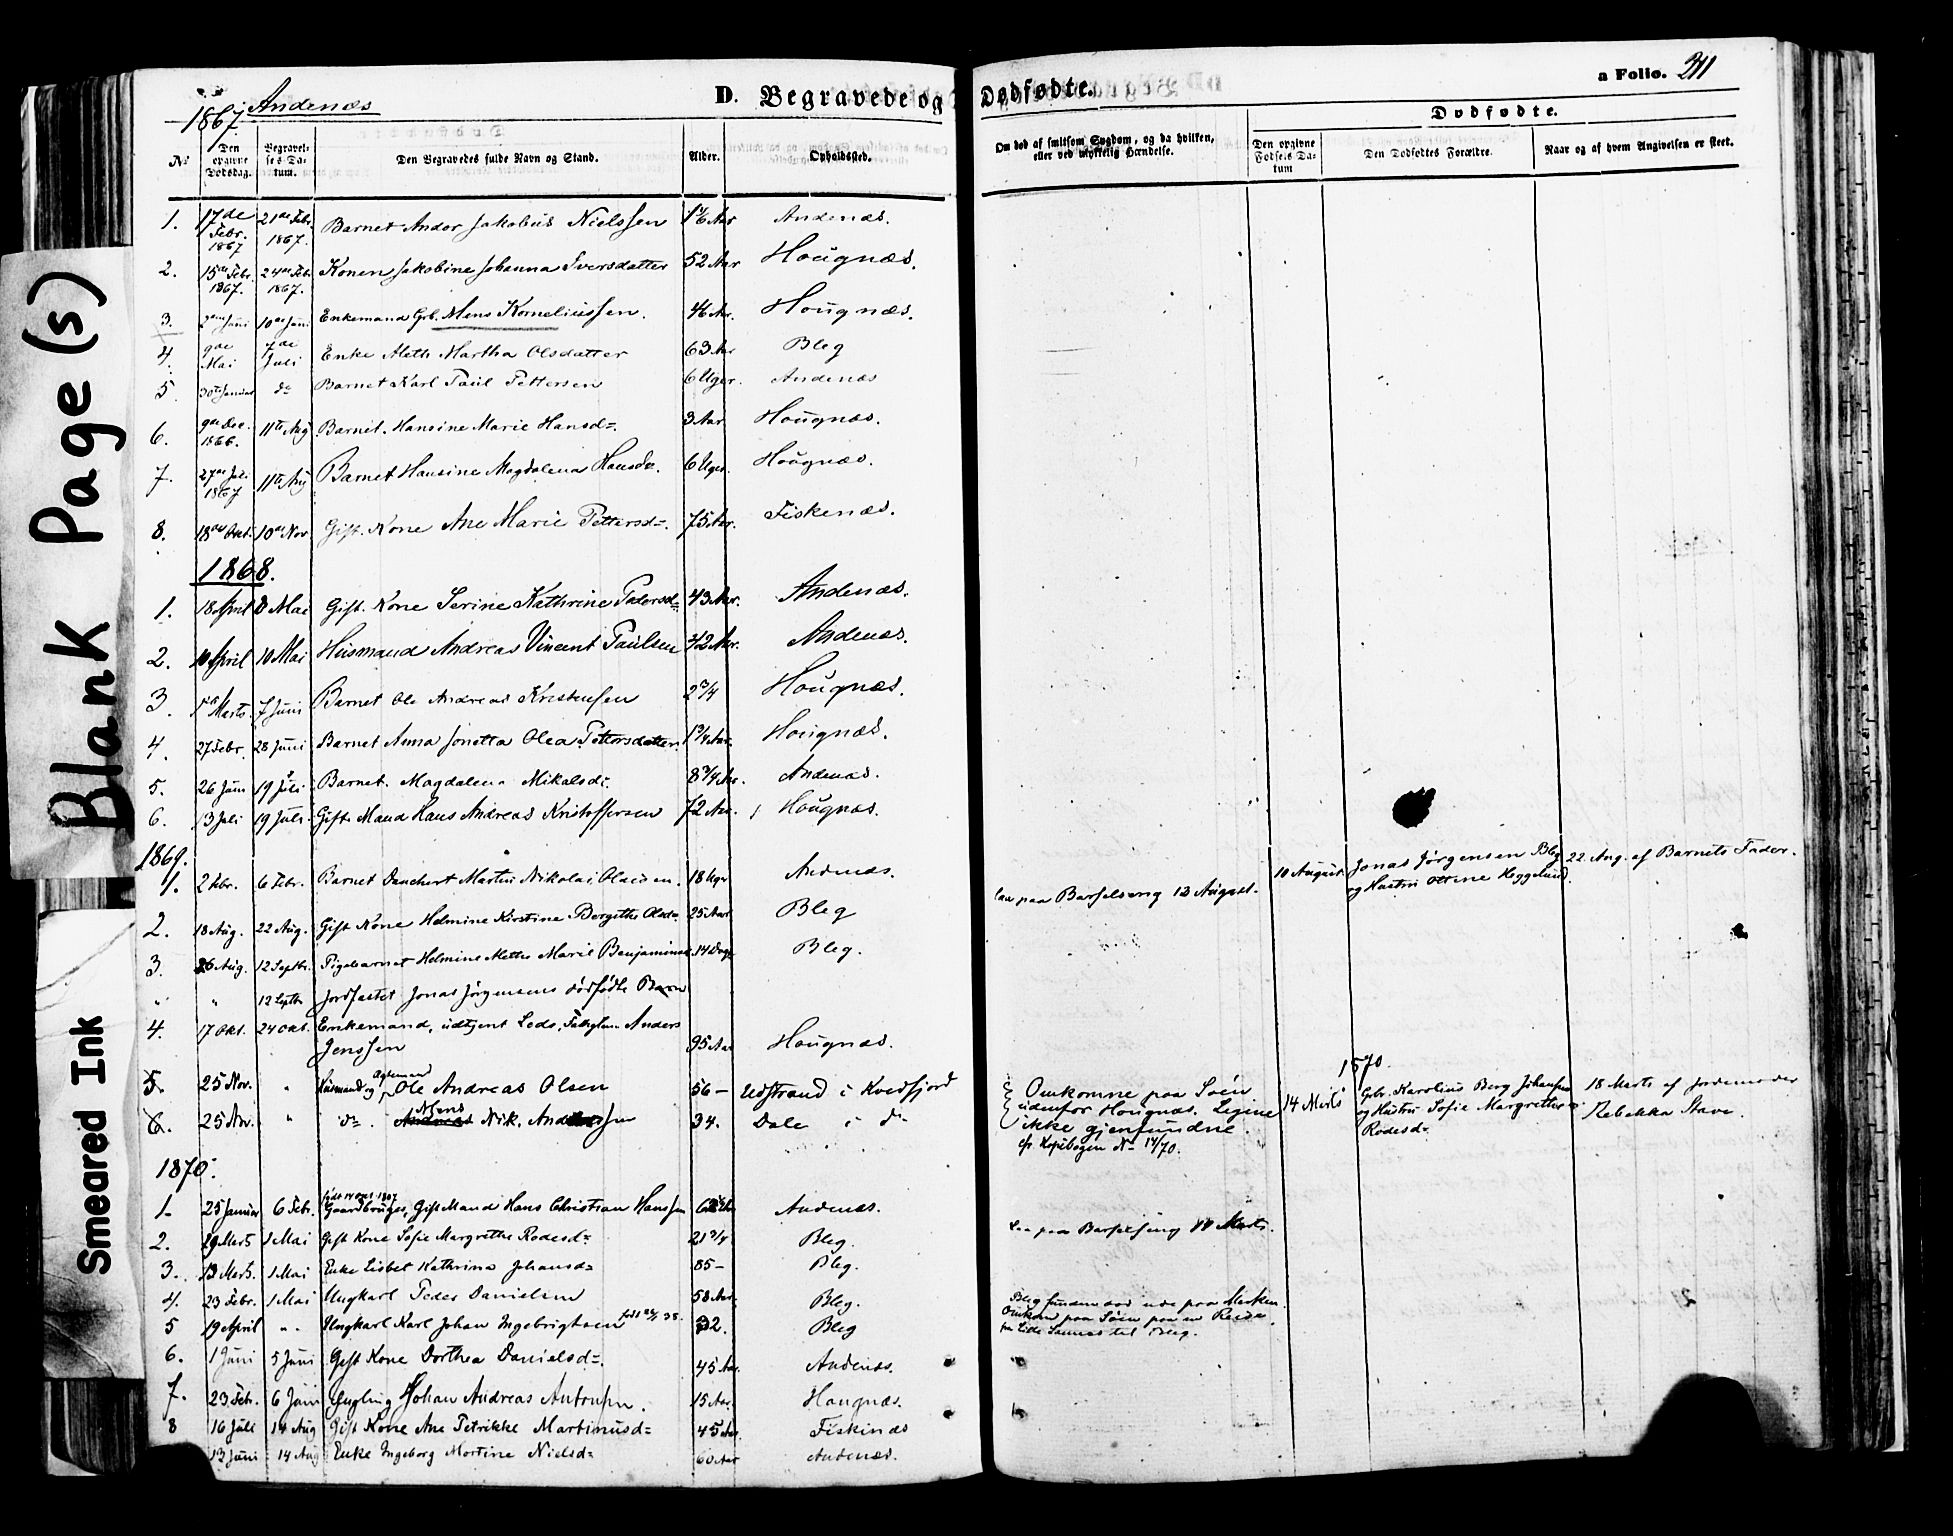 Blank Page(s)
Smeared Ink
1867 Andenæs
D. Begravede og Dødfødte.
a Folio. 211
No
Den opgivne Dødsdag.
Begravelses Datum.
Den Begravedes fulde Navn og Stand.
Alder.
Opholdssted.
Om død af smitsom Sygdom, og da hvilken, eller ved ulykkelig Hændelse.
Dødfødte.
Den opgivne Fødsels Datum
Den Dødfødtes Forældre.
Naar og af hvem Angivelsen er skeet.
1. 17de Febr. 1867 21de Febr. 1867. Barnet Andor Jakobus Nielssen 1 1/6 Aar Andenæs.
2. 15de Febr. 1867. 24de Febr. 1867. Konen Jakobine Johanna Iversdatter 52 Aar Hougnæs.
3. 2den Juni 10de Juni Enkemand Grb. Mens Korneliussen. 46 Ar. Hougnæs.
4. 9de Mai 7de Juli Enke Aleth Martha Olsdatter 63 Aar Bleg
5. 30te Januar do Barnet Karl Paul Pettersen 6 Uger. Andenæs
6. 9de Dec. 1866. 11te Aug Barnet. Hansine Marie Hansd=. 3 Aar Hougnæs.
7. 27de Juli 1867 11te Aug Barnet Hansine Magdalena Hansdr. 6 Uger. Hougnæs.
8. 18de Okt. 10de Nov. Gift. Kone Ane Marie Pettersd=. 75 Aar. Fiskenæs.
1868.
1. 18 April 8 Mai Gift. Kone Serine Kathrine Pedersd= 43 Aar. Andenæs.
2. 10 April 10 Mai Husmand Andreas Vincent Paulsen 42 Aar. Andenæs.
3. 1ste Marts. 7 Juni Barnet Ole Andreas Kristensen 2 3/4 Hougnæs.
4. 27 Febr. 28 Juni Barnet Anna Jonetta Olea Pettersdatter. 1 3/4 Aar. Hougnæs.
5. 26 Juni 19 Juli Barnet. Magdalena Mikalsd=. 8 3/4 Ar. Andenæs.
6. 13 Juli 19 Juli. Gift Mand Hans Andreas Kristoffersen 72 Aar. Hougnæs.
1869.
1. 2 Febr. 6 Febr. Barnet Danchert Martin Nikolai Olaisen. 18 Uger Andenæs.
10 August. Jonas Jørgensen Bleg 22 Aug. af Barnets Fader.
og Hustru Oline Heggelund.
2. 18 Aug. 22 Aug. Gift Kone Helmine Kirstine Bergithe Olsd= 25 Aar Bleg
paa Barselseng 13 August.
3. 26 Aug. 12 Septbr. Pigebarnet Helmine Mette Marie Benjaminsd 14 Dage Bleg.
" " 12 Septbr Jordfæstet Jonas Jørgensens dødfødte Barn
4. 17 Okt. 24 Okt. Enkemand, udtjent Anders
Jenssen 95 Aar Hougnæs.
5. 25 Nov. " Husmand og Ole Andreas Olsen 56 – Udstrand i Kvedfjord
6. 25 Nov. " do. Mens Nik. Anderssen 34. Dale i do
Omkomne paa Søen
udenfor Hougnæs. Ligene
ikke gjenfundne.
cfr. Kopibogen No 14/70.
1870.
14 Marts Gbr. Karolius Berg Johansen
og Hustru Sofie Margrethe
Rodesd=
18 Marts af Jordemoder
Rebekka Stave.
1870.
1. 25 Januar 6 Febr. født 14 Oct 1807 Gaardbruger, Gift Mand Hans Christian Hanssen Andenæs.
2. 29 Marts 1 Mai Gift Kone Sofie Margrethe Rodesd= 21 3/4 Bleg.
paa Barselseng Marts.
3. 13 Marts. 1 Mai Enke Lisbet Kathrina Johansd= 85 – Bleg.
4. 23 Febr. 1 Mai Ungkarl Peder Danielsen 58 Aar. Bleg.
Bleg funden død ude paa Marken.
5 19 April ". Ungkarl Karl Johan Ingebrigtsen 32. Bleg
Omkom paa Søen paa en Reise
til Bleg.
6. 1 Juni 5 Juni Gift Kone Dorthea Danielsd=. 45 Aar. Andenæs.
7. 23 Feb. 6 Juni Yngling Johan Andreas Antonsen. 15 Aar. Hougnæs.
8 16 Juli 14 Aug Gift Kone Ane Petrikke Martinusd= 45 Aar. Fiskenæs
13 Juni 14 Aug Enke Ingeborg Martine Nielsd= 60 Aar Andenæs.